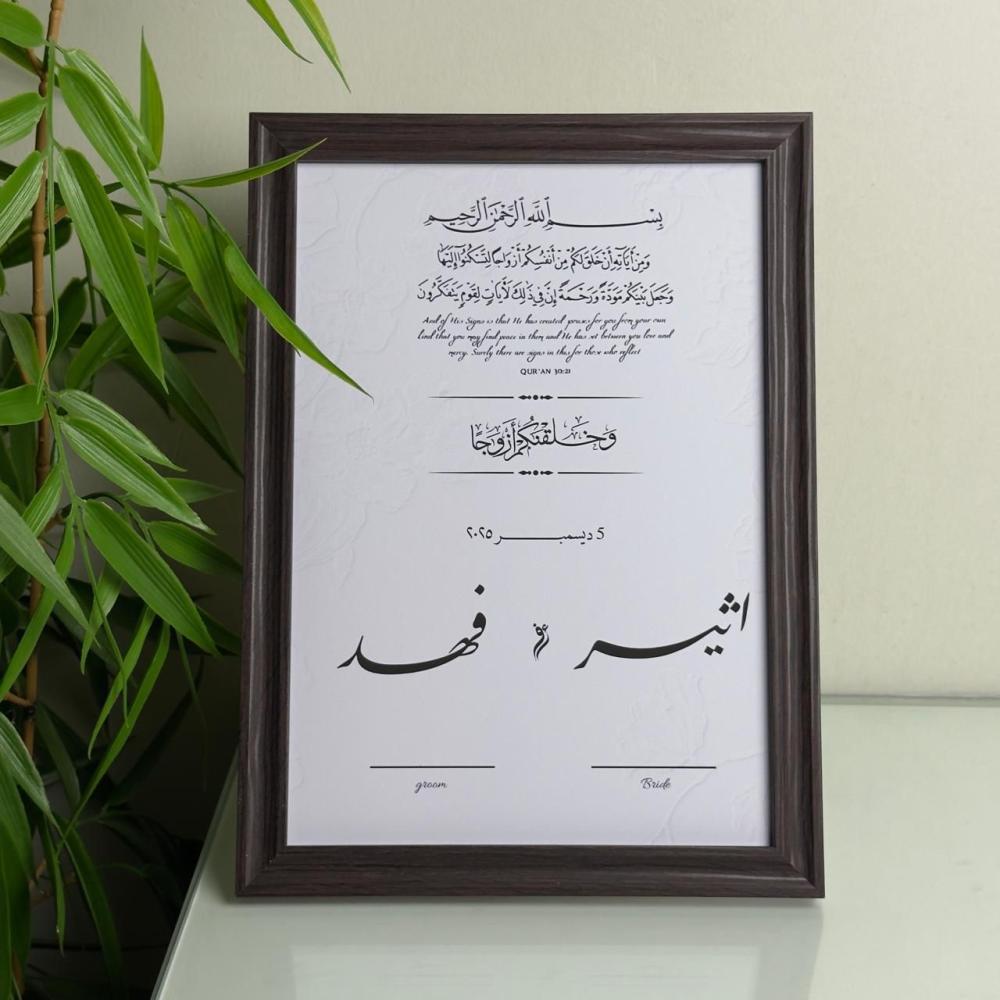 بِسْمِ ٱللَّهِ ٱلرَّحْمَٰنِ ٱلرَّحِيمِ
وَمِنْ آيَاتِهِ أَنْ خَلَقَ لَكُمْ مِنْ أَنْفُسِكُمْ أَزْوَاجًا لِتَسْكُنُوا إِلَيْهَا
وَجَعَلَ بَيْنَكُمْ مَوَدَّةً وَرَحْمَةً إِنَّ فِي ذَلِكَ لَآيَاتٍ لِقَوْمٍ يَتَفَكَّرُونَ
And of His Signs is that He has created pouses for you from your own
kind that you may find peace in them and He has set between you love and
mercy. Surely there are signs in this for those who reflect
QUR'AN 30:21
وَخَلَقْنَٰكُمْ أَزْوَٰجًا
5 ديسمبر ٢٠٢٥
اثير و فهد
groom Bride